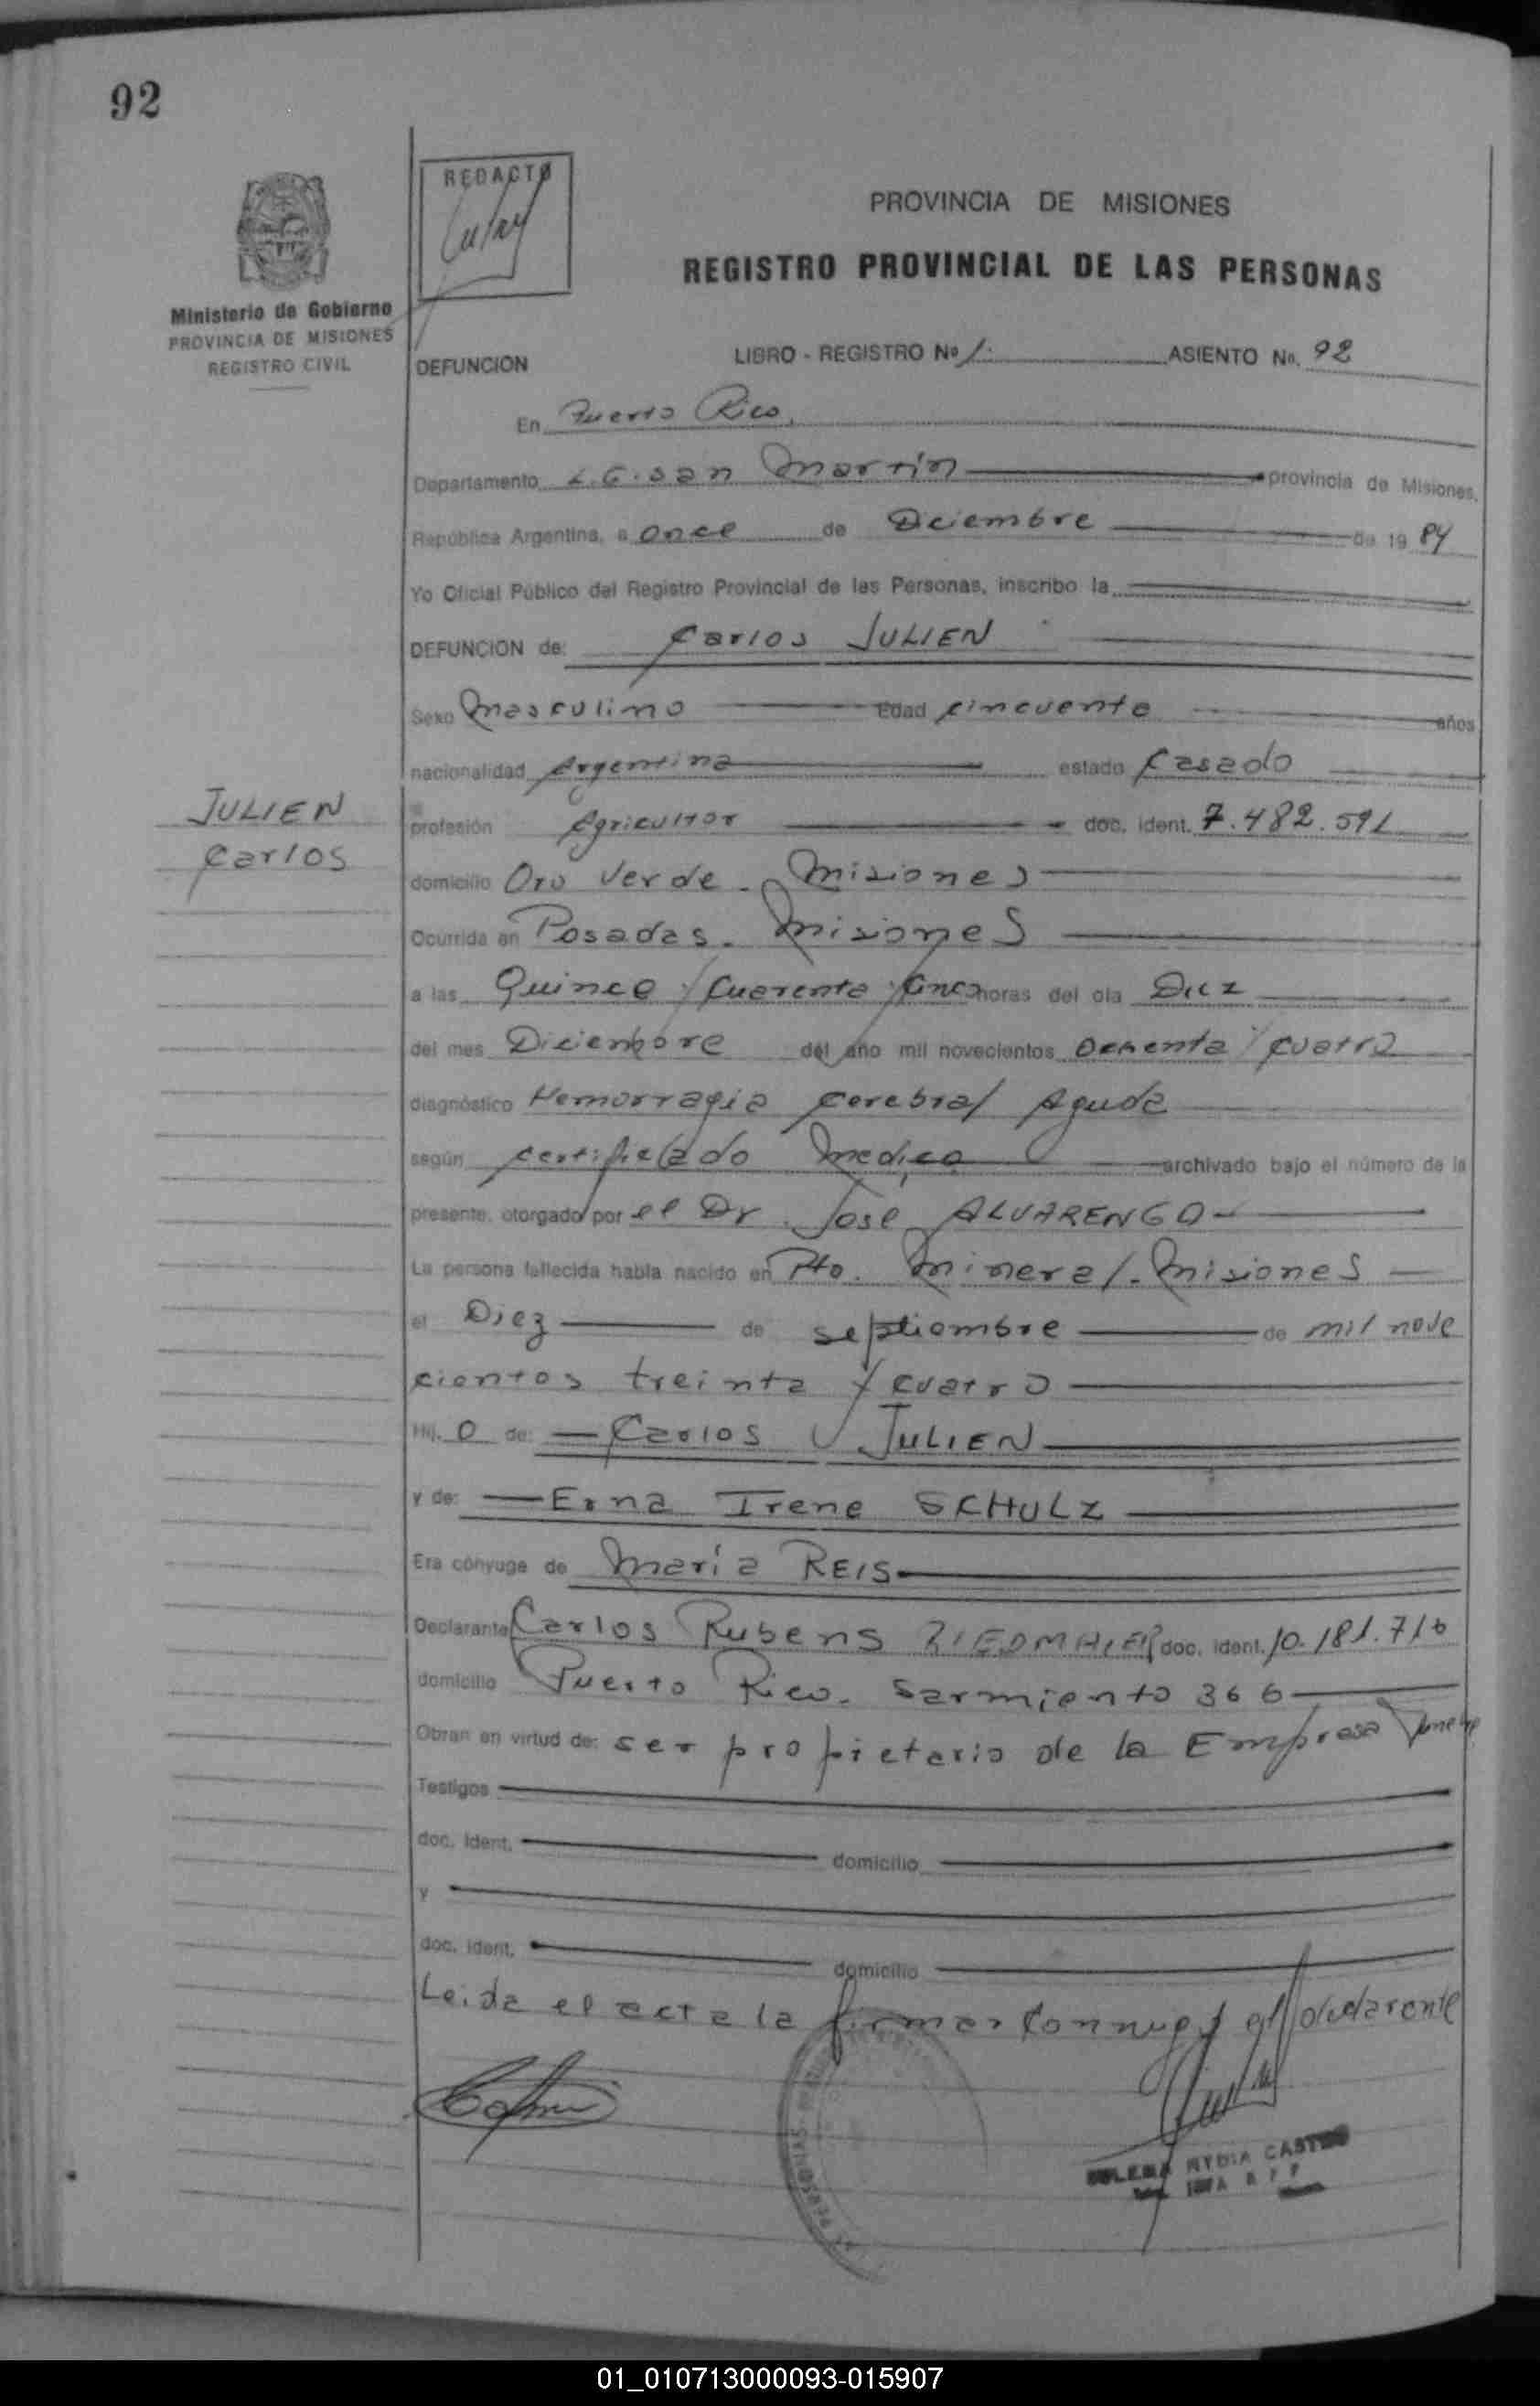 92
REDACTO
PROVINCIA DE MISIONES
REGISTRO PROVINCIAL DE LAS PERSONAS
Ministerio de Gobierno
PROVINCIA DE MISIONES
REGISTRO CIVIL
DEFUNCION
LIBRO - REGISTRO Nº 1. ASIENTO No. 92
En Puerto Rico.
Departamento L.G. San Martín provincia de Misiones,
República Argentina, a once de Diciembre de 19 84
Yo Oficial Público del Registro Provincial de las Personas, inscribo la
DEFUNCION de: Carlos JULIEN
Sexo Masculino Edad cincuenta años
nacionalidad Argentina estado Casado
JULIEN
Carlos
profesión Agricultor doc. ident. 7.482.591
domicilio Oro Verde - Misiones
Ocurrida en Posadas - Misiones
a las Quince y Cuarenta y Cinco horas del día Diez
del mes Diciembre del año mil novecientos Ochenta y cuatro
diagnóstico Hemorragia Cerebral Aguda
según certificado Medico archivado bajo el número de la
presente, otorgado por el Dr. José ALVARENGO
La persona fallecida había nacido en Pto. Mineral - Misiones
el Diez de septiembre de mil nove
cientos treinta y cuatro
Hij. o de: Carlos JULIEN
y de: Erna Irene SCHULZ
Era cónyuge de María REIS
Declarante Carlos Rubens RIEDMAIER doc. ident. 10.181.716
domicilio Puerto Rico. Sarmiento 366
Obran en virtud de: ser propietario de la Empresa Funebre
Testigos
doc. ident. domicilio
y
doc. ident. domicilio
Leida el acta la firman conmigo el declarante
CASTRO
01_010713000093-015907